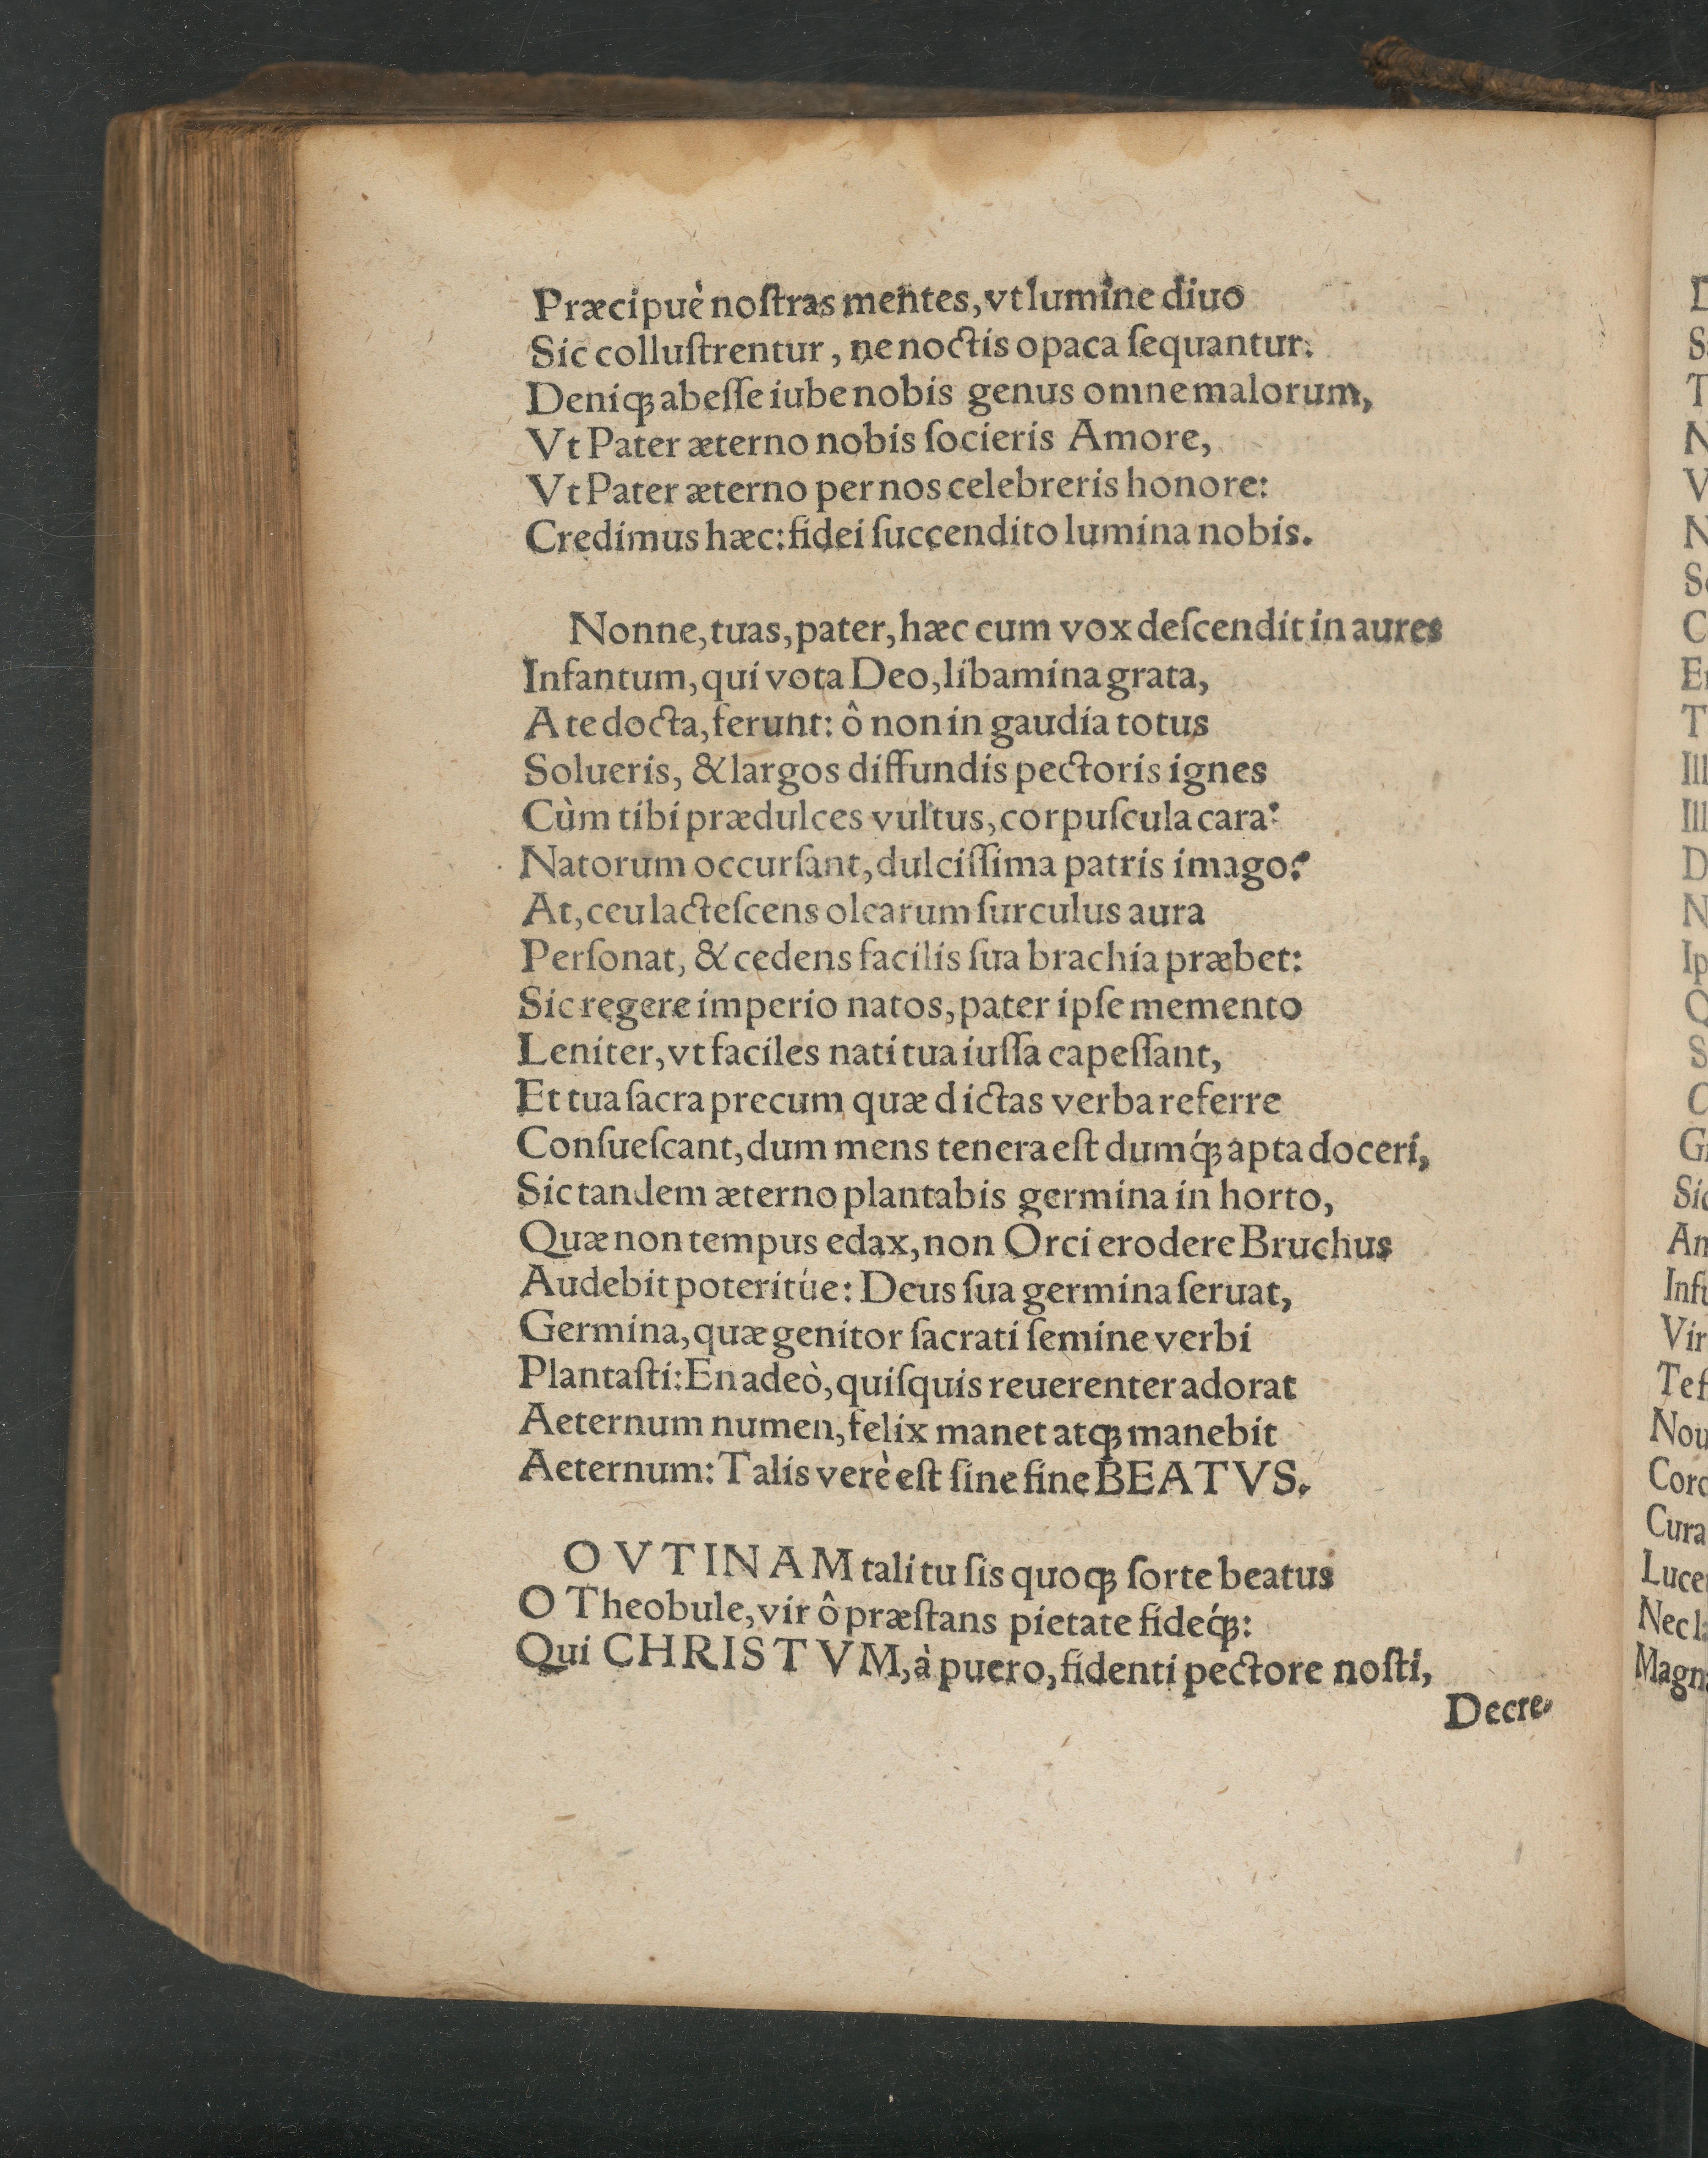 Præcipuè noſtras mentes, vt lumine diuo
Sic colluſtrentur, ne noctis opaca ſequantur:
Deniqꝫ abeſſe iube nobis genus omne malorum,
Vt Pater æterno nobis ſocieris Amore,
Vt Pater æterno per nos celebreris honore:
Credimus hæc: fidei ſuccendito lumina nobis.
Nonne, tuas, pater, hæc cum vox deſcendit in aures
Infantum, qui vota Deo, libamina grata,
A te docta, ferunt: ô non in gaudia totus
Solueris, & largos diffundis pectoris ignes
Cùm tibi prædulces vultus, corpuſcula cara:
Natorum occurſant, dulciſſima patris imago?
At, ceu lacteſcens olearum ſurculus aura
Perſonat, & cedens facilis ſua brachia præbet:
Sic regere imperio natos, pater ipſe memento
Leniter, vt faciles nati tua iuſſa capeſſant,
Et tua ſacra precum quæ dictas verba referre
Conſueſcant, dum mens tenera eſt dumq́ꝫ apta doceri,
Sic tandem æterno plantabis germina in horto,
Quæ non tempus edax, non Orci erodere Bruchus
Audebit poteritúe: Deus ſua germina ſeruat,
Germina, quæ genitor ſacrati ſemine verbi
Plantaſti: En adeò, quiſquis reuerenter adorat
Aeternum numen, felix manet atqꝫ manebit
Aeternum: Talis verè eſt ſine fine BEATVS.
O VTINAM tali tu ſis quoqꝫ ſorte beatus
O Theobule, vir ô præſtans pietate fideq́ꝫ:
Qui CHRISTVM, à puero, fidenti pectore noſti,
Decre-